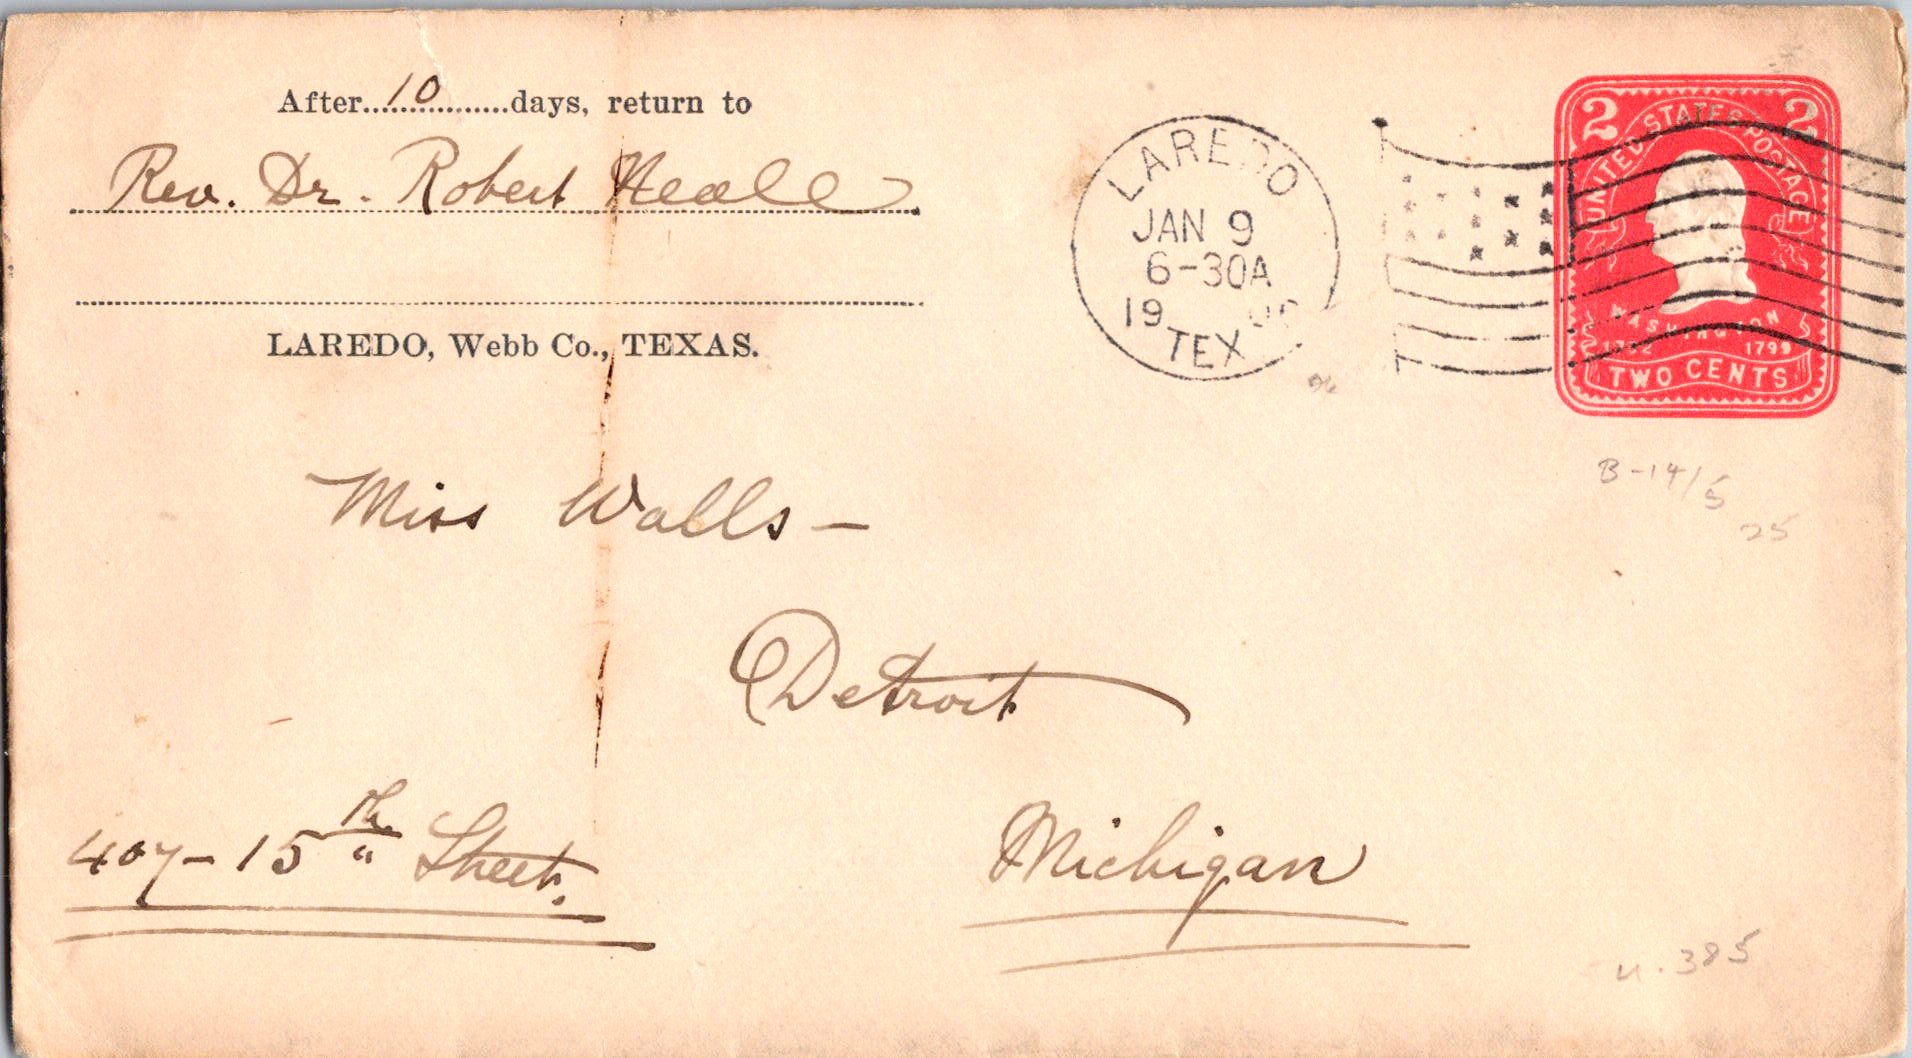 After 10 days, return to
Rev. Dr. Robert Neale
LAREDO, Webb Co., TEXAS.
LAREDO
JAN 9
6-30A
19
TEX
2 2
UNITED STATES POSTAGE
WASHINGTON
1732 1799
TWO CENTS
B-14/5
25
Miss Walls —
Detroit
Michigan
407 - 15th Street.
U.385